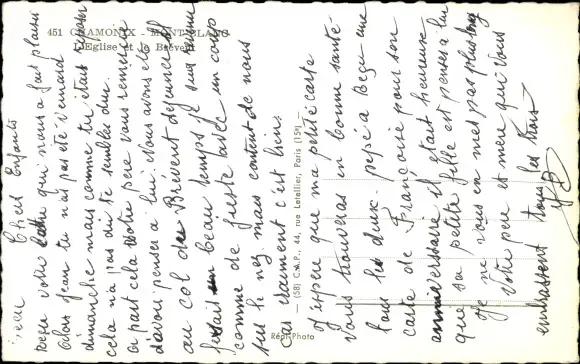 451 CHAMONIX - MONT-BLANC
L'Eglise et le Brévent
Chers Enfants
votre lettre que nous a fait plaisir
alors Jean tu n'as pas été venard
dimanche mais comme tu étais
cela n'a pas du te sembler dur.
a part cela votre pere vous remercie
d'avoir penser a lui. Nous avons été
au col du Brévent déjeuner il
faisait un beau temps je suis
comme de juste avec un coup
sur le nez mais content de nous
car vraiment c'est bien.
J'espere que ma petite carte
vous trouveras en bonne santé
tous les deux. pépé a reçu une
carte de Françoise pour son
anniversaire il était heureux
que sa petite fille est penser a lui
Je ne vous en mes pas plus long
Votre pere et meme qui vous
embrassent tous les trois
(58) C.A.P., 44, rue Letellier, Paris (15e)
Réal-Photo